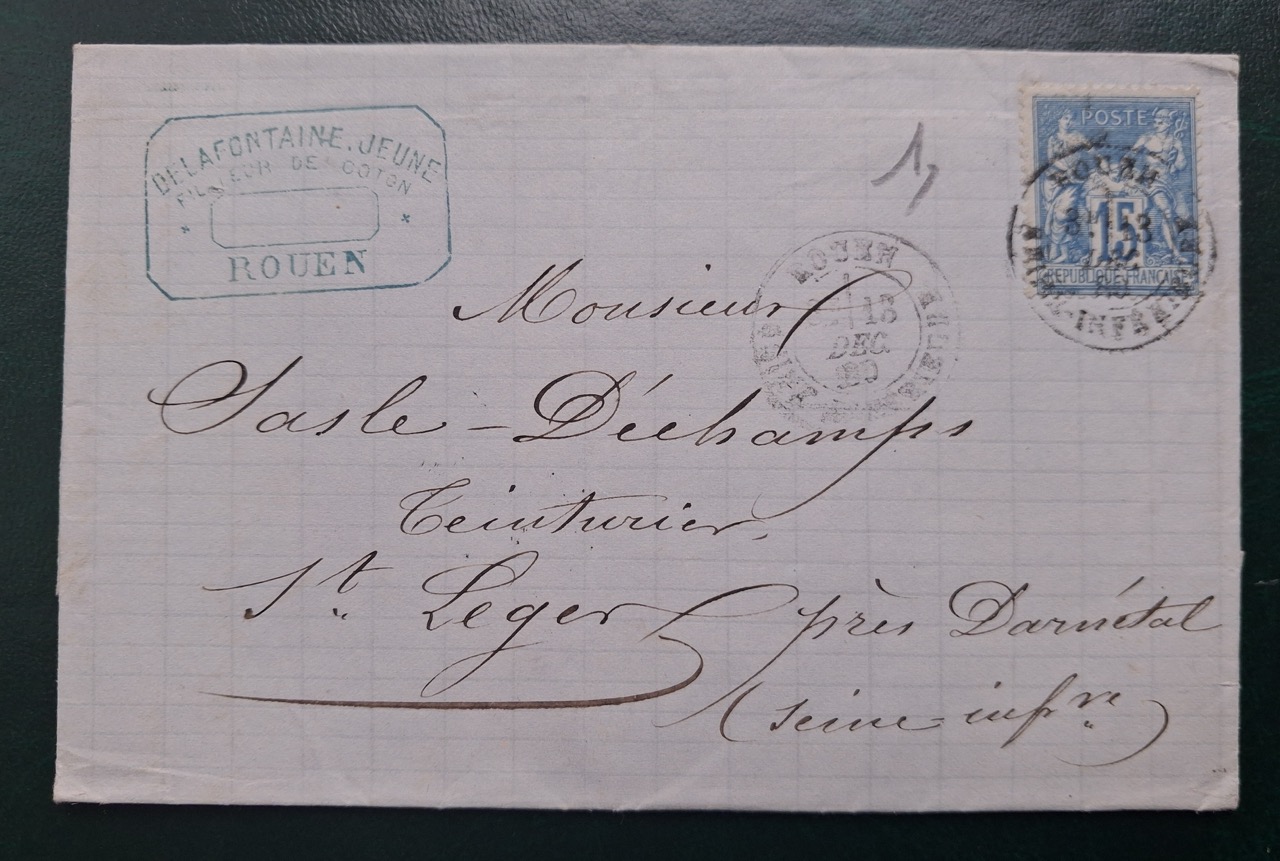 DELAFONTAINE, JEUNE
FILATEUR DE COTON
ROUEN
1
POSTE
15
REPUBLIQUE FRANCAISE
ROUEN
13
SEINE-INFERIEURE
ROUEN
13
DEC.
80
SEINE INFERIEURE
Monsieur
Sasle-Déchamps
Teinturier,
St. Leger près Darnétal
(Seine-infre)